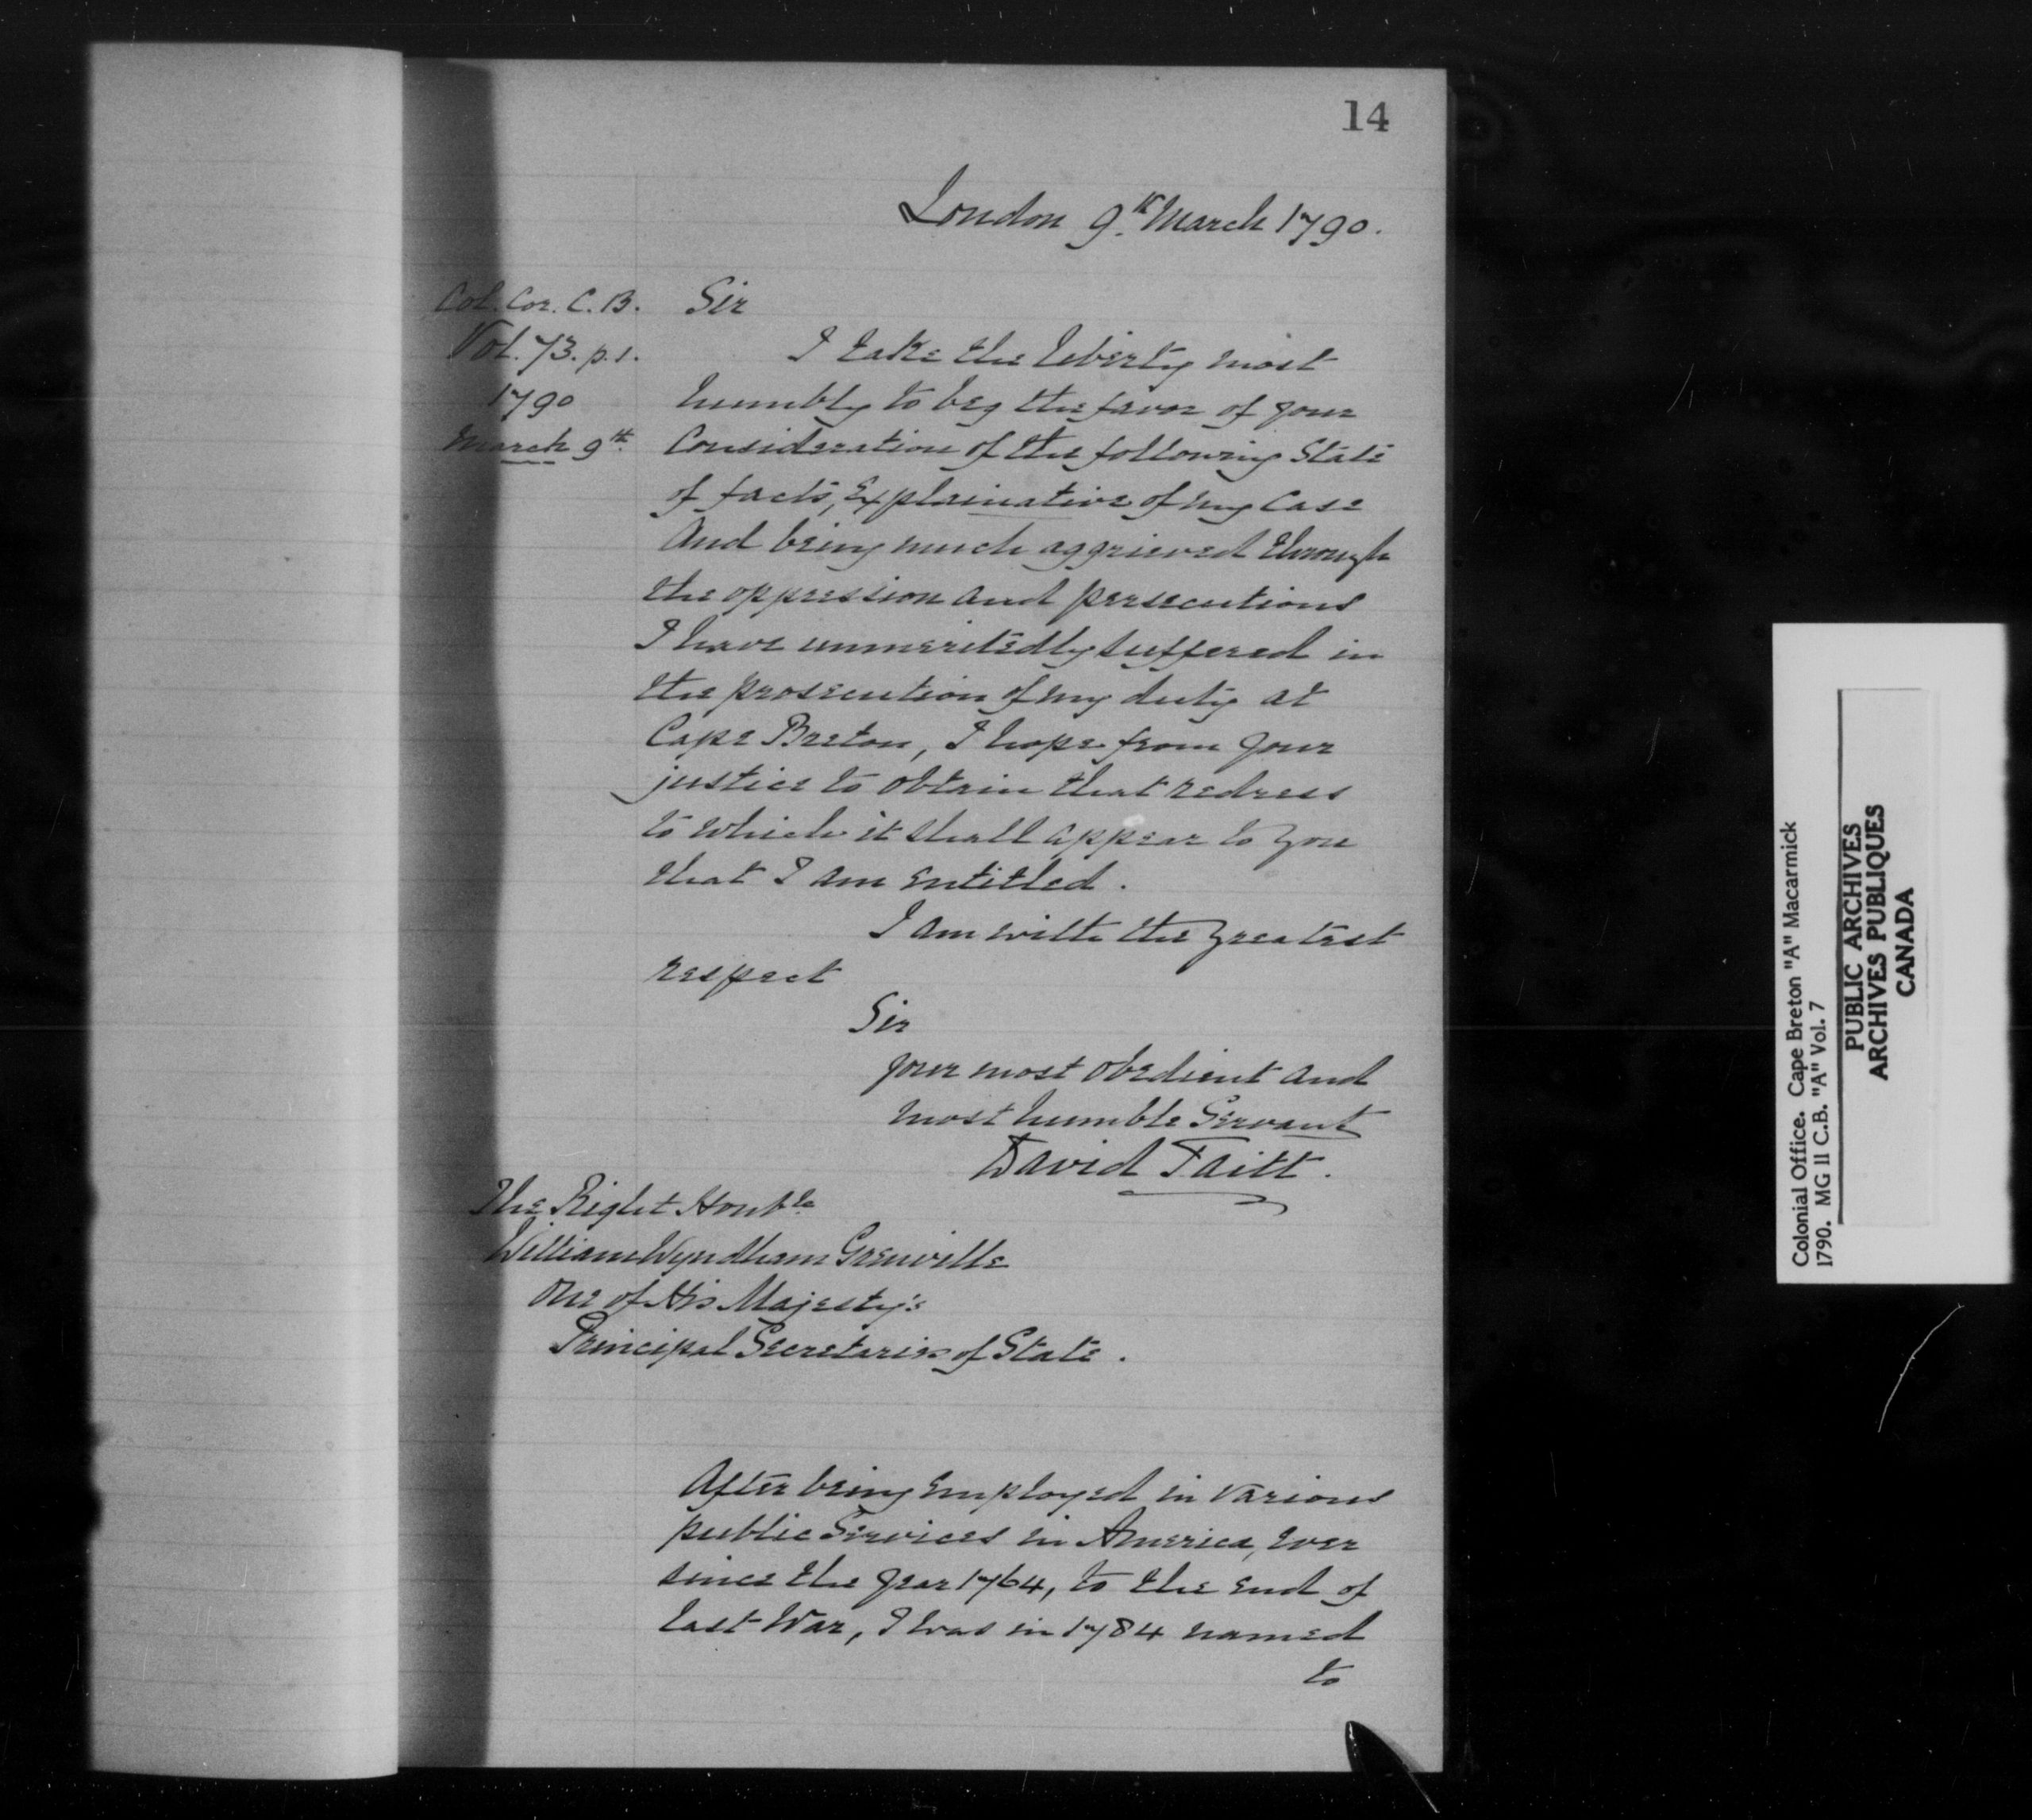 14
London 9th. March 1790.
Col. Cor. C. B.
Vol. 73. p. 1.
1790
March 9th.
Sir
I take the liberty most
humbly to beg the favor of your
Consideration of the following State
of facts, Explainative of my Case
And being much aggrieved through
the oppression and persecutions
I have unmeritedly suffered in
the prosecution of my duty at
Cape Breton, I hope from your
justice to obtain that redress
to which it shall appear to you
that I am entitled.
I am with the greatest
respect
Sir
your most obedient and
most humble Servant
David Taitt.
The Right Honble
William Wyndham Grenville
One of His Majesty's
Principal Secretaries of State.
After being employed in various
public Services in America, ever
since the year 1764, to the end of
last War, I was in 1784 named
to
Colonial Office. Cape Breton "A" Macarmick
1790. MG 11 C.B. "A" Vol. 7
PUBLIC ARCHIVES
ARCHIVES PUBLIQUES
CANADA